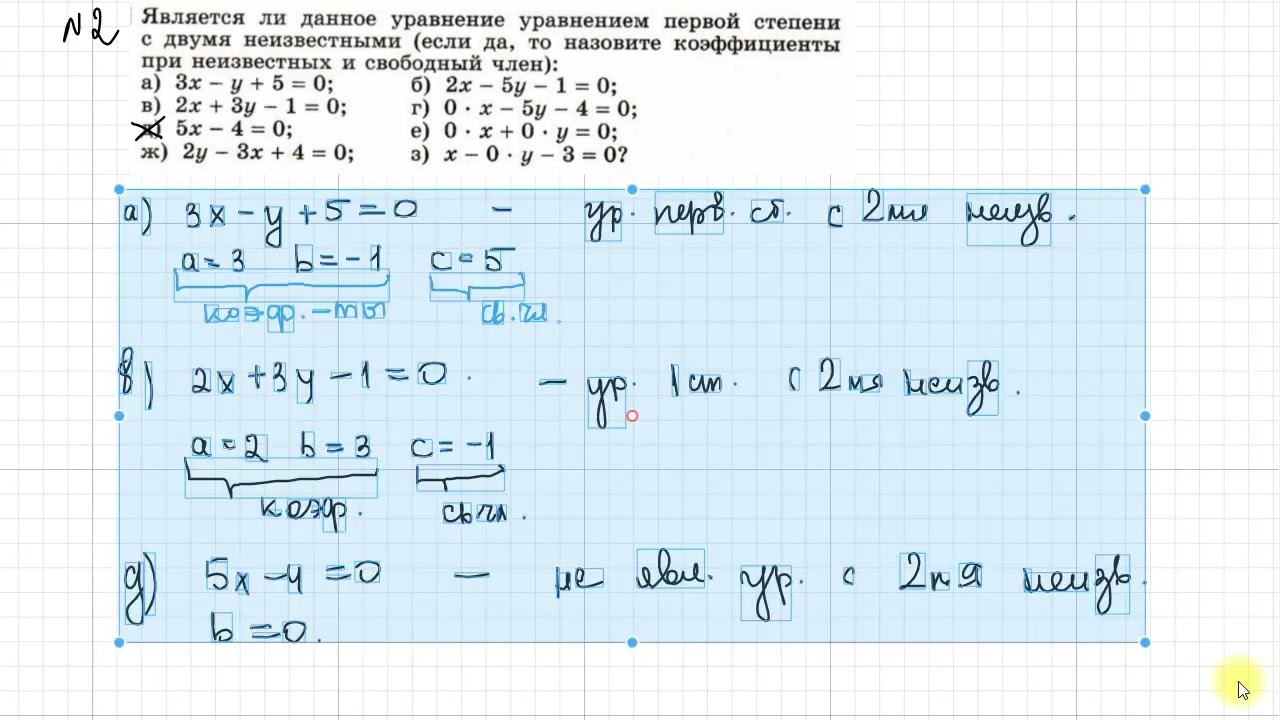 N2
Является ли данное уравнение уравнением первой степени
с двумя неизвестными (если да, то назовите коэффициенты
при неизвестных и свободный член):
а) 3x − y + 5 = 0; б) 2x − 5y − 1 = 0;
в) 2x + 3y − 1 = 0; г) 0 · x − 5y − 4 = 0;
д) 5x − 4 = 0; е) 0 · x + 0 · y = 0;
ж) 2y − 3x + 4 = 0; з) x − 0 · y − 3 = 0?
а) 3x − y + 5 = 0 − ур. перв. ст. с 2мя неизв.
a = 3 b = −1 c = 5
коэф. − ты св. чл.
в) 2x + 3y − 1 = 0. − ур. 1 ст. с 2мя неизв.
a = 2 b = 3 c = −1
коэф. св чл.
д) 5x − 4 = 0 − не явл. ур. с 2мя неизв.
b = 0.